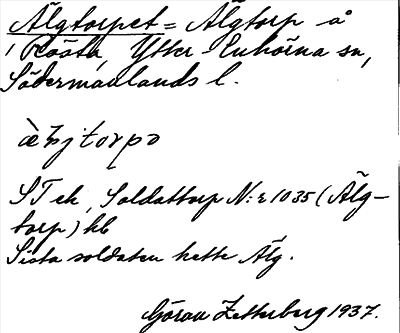 Älgtorpet = Älgtorp å
Rösta, Ytter-Enhörna sn,
Södermanlands l.
STek, Soldattorp N:r 1035 (Älg-
torp) hb
Sista soldaten hette Älg.
Göran Zetterberg 1937.